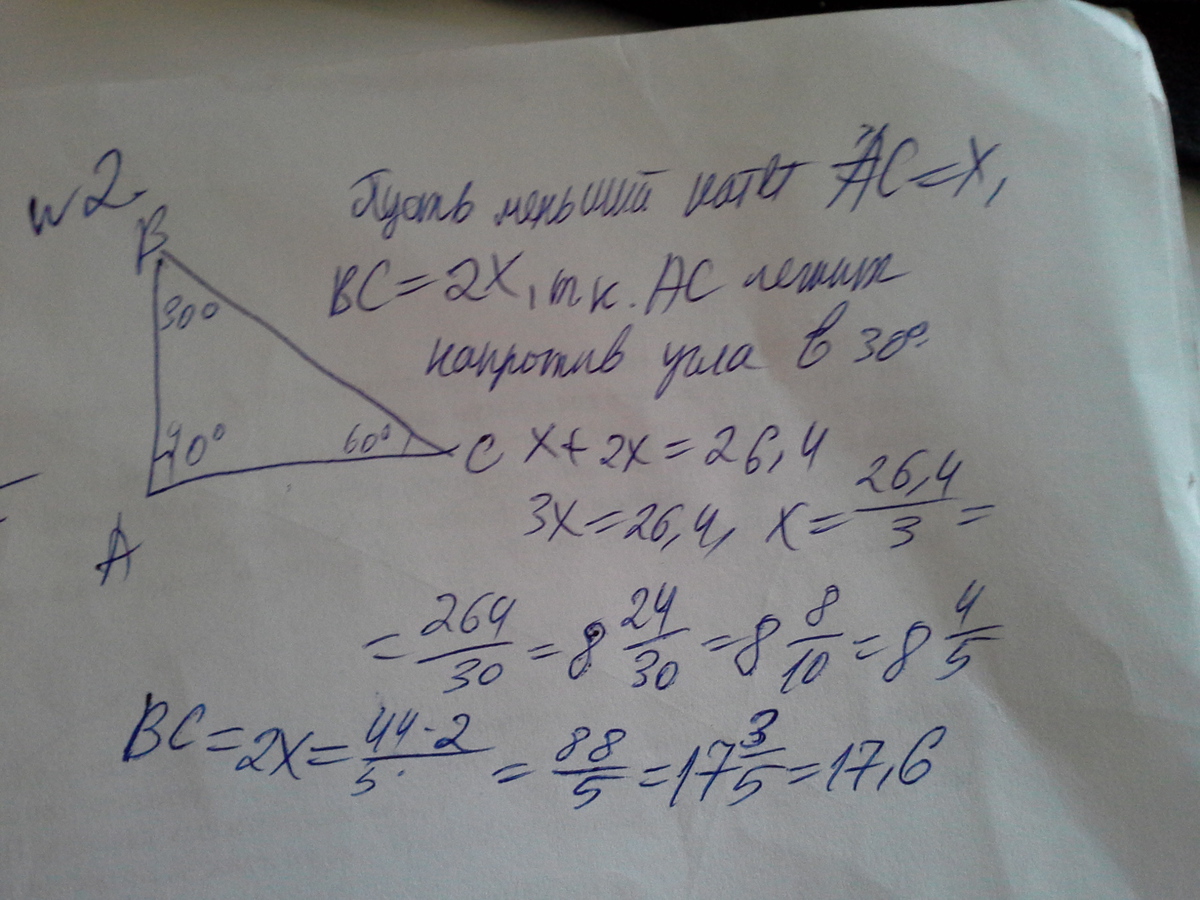 №2.
Пусть меньший катет AC=x,
BC=2x, т.к. AC лежит
напротив угла в 30°.
B
30°
90°
60°
C
A
x+2x=26,4
3x=26,4, x=26,4/3=
=264/30=8 24/30=8 8/10=8 4/5
BC=2x=44·2/5=88/5=17 3/5=17,6